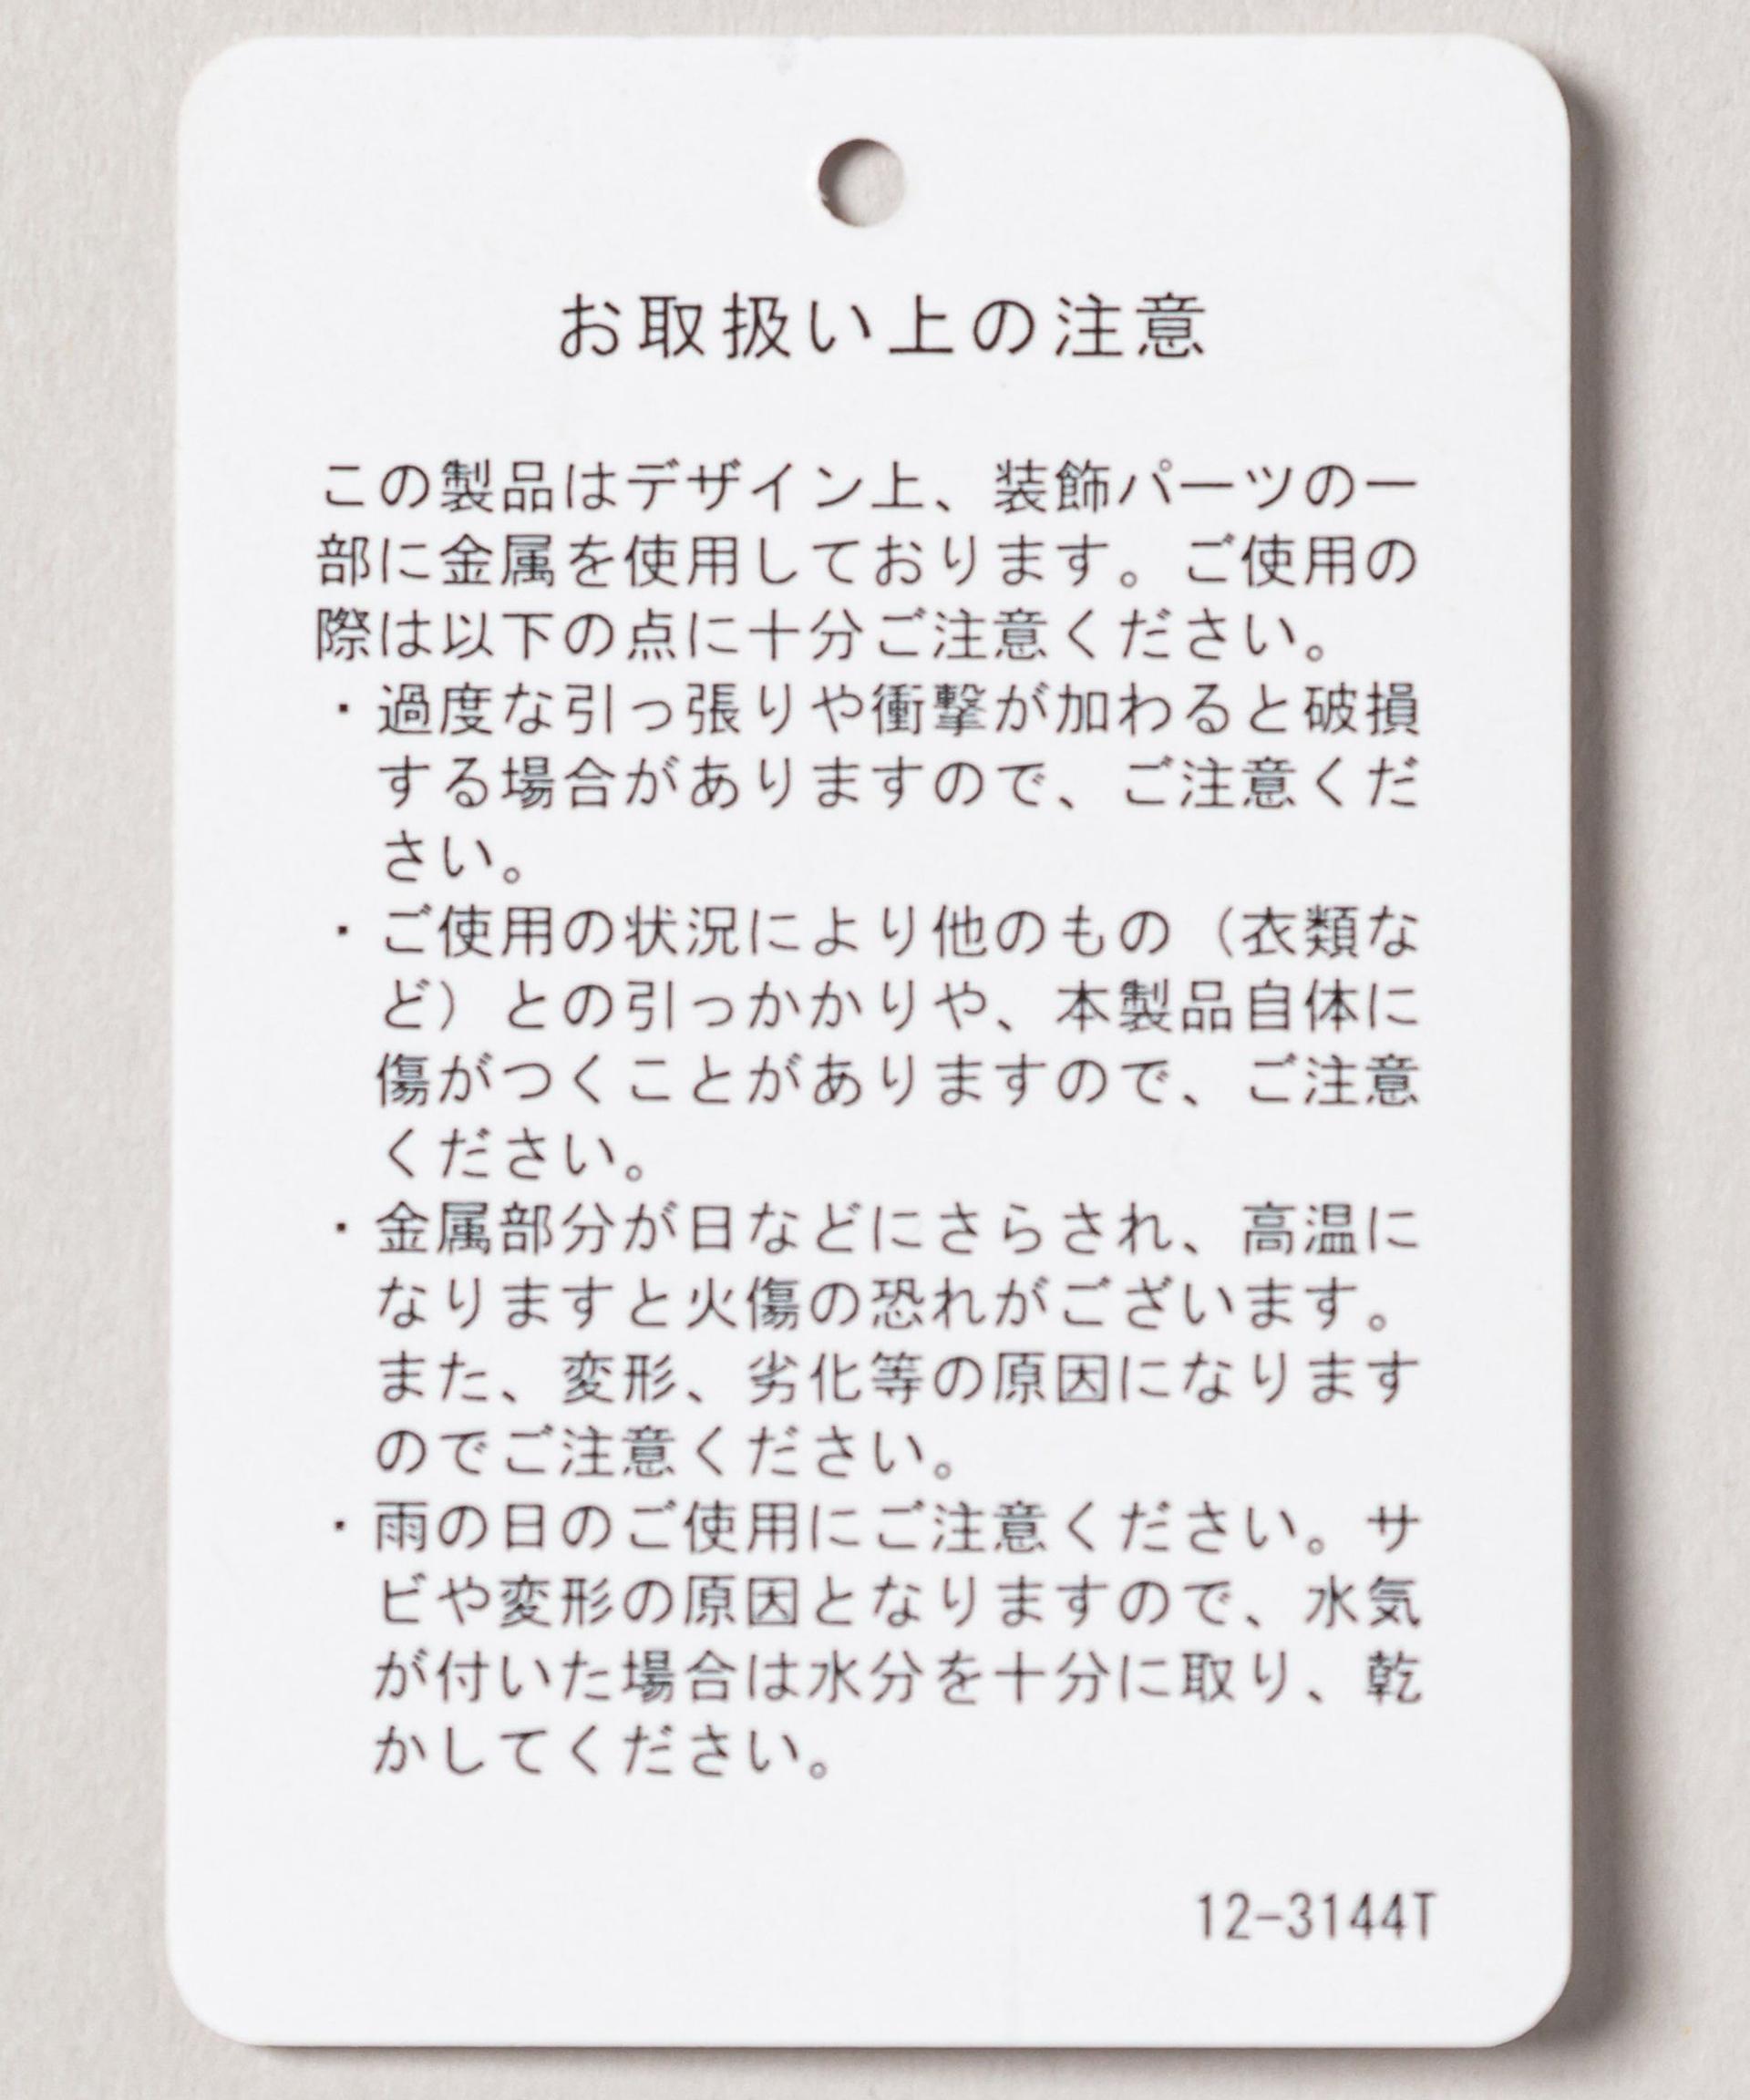 お取扱い上の注意
この製品はデザイン上、装飾パーツの一
部に金属を使用しております。ご使用の
際は以下の点に十分ご注意ください。
・過度な引っ張りや衝撃が加わると破損
する場合がありますので、ご注意くだ
さい。
・ご使用の状況により他のもの（衣類な
ど）との引っかかりや、本製品自体に
傷がつくことがありますので、ご注意
ください。
・金属部分が日などにさらされ、高温に
なりますと火傷の恐れがございます。
また、変形、劣化等の原因になります
のでご注意ください。
・雨の日のご使用にご注意ください。サ
ビや変形の原因となりますので、水気
が付いた場合は水分を十分に取り、乾
かしてください。
12-3144T